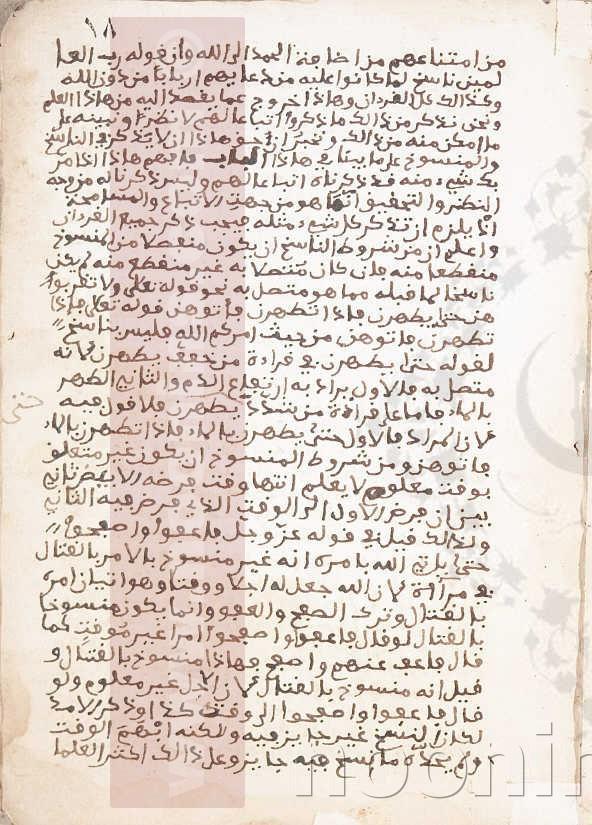 ١٨
من امتناعهم من اضافة الحمد الى الله وان قوله رب العا
لمين ناسخ لما كانوا عليه من دعايهم اربابا من دون الله
وكذلك كل القرءان وهاذا خروج عما يقصد اليه من هاذا العلم
ونحن نذكر من ذالك ما ذكروا اتباعا لهم لا نضرا ونبينه على
ما امكن منه من ذالك ونخبر ان حق هاذا ان لا يذكر في الناسخ
والمنسوخ على ما بينا في هاذا الباب فافهم هاذا اذا مر
بك شيء منه قد ذكرناه اتباعا لهم وليس ذكرنا له من جهة
النضر والتحقيق انما هو من جهة الاتباع والمسامحة
اذ يلزم ان نذكر كل شيء مثله فيجب ذكر جميع القرءان
واعلم ان من شروط الناسخ ان يكون منفصلا من المنسوخ
منقطعا منه فان كان متصلا به غير منقطع منه لم يكن
ناسخا لما قبله مما هو متصل به نحو قوله تعلى ولا تقربوا
هن حتى يطهرن فاذا تطهرن فاتوهن فوله تعلى فاذا
تطهرن فاتوهن من حيث امركم الله فليس بناسخ
لقوله حتى يطهرن في قراءة من خفف يطهرن لانه
متصل به فالاول يراد به ارتفاع الدم والثاني الطهر
بالماء فاما على قراءة من شدد يطهرن فلا قول فيه
لان المراد فالاول حتى يطهرن بالماء فاذا تطهرن بالماء
فاتوهن ومن شروط المنسوخ ان يكون غير متعلق
بوقت معلوم لا يعلم انتهاء وقت فرضه الا بنص ثان
يبين ان فرض الاول الى الوقت الذي فرض فيه الثاني
ولذالك قيل في قوله عز وجل فاعفوا واصفحوا
حتى ياتي الله بامره انه غير منسوخ بالامر بالقتال
في براءة لان الله جعل له اجلا ووقتا وهو اتيان امره
بالقتال وترك الصفح والعفو وانما يكون منسوخا
بالقتال لو قال فاعفوا واصفحوا امرا غير موقت كما
قال فاعف عنهم واصفح فهاذا منسوخ بالقتال و
قيل انه منسوخ بالقتال لان الاجل غير معلوم ولو
قال فاعفوا واصفحوا الى وقت كذا وذكر الامد
لكان النسخ غير جايز فيه ولاكنه ابهم الوقت
ولم يحده فالنسخ فيه جايز وعلى ذالك اكثر العلما
noonin